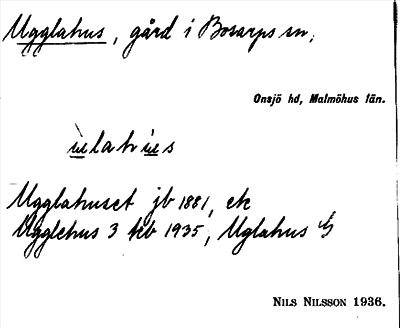 Ugglahus, gård i Bosarps sn,
Onsjö hd, Malmöhus län.
Ugglahuset jb 1881, ek
Ugglehus 3 hb 1935, Uglahus
NILS NILSSON 1936.